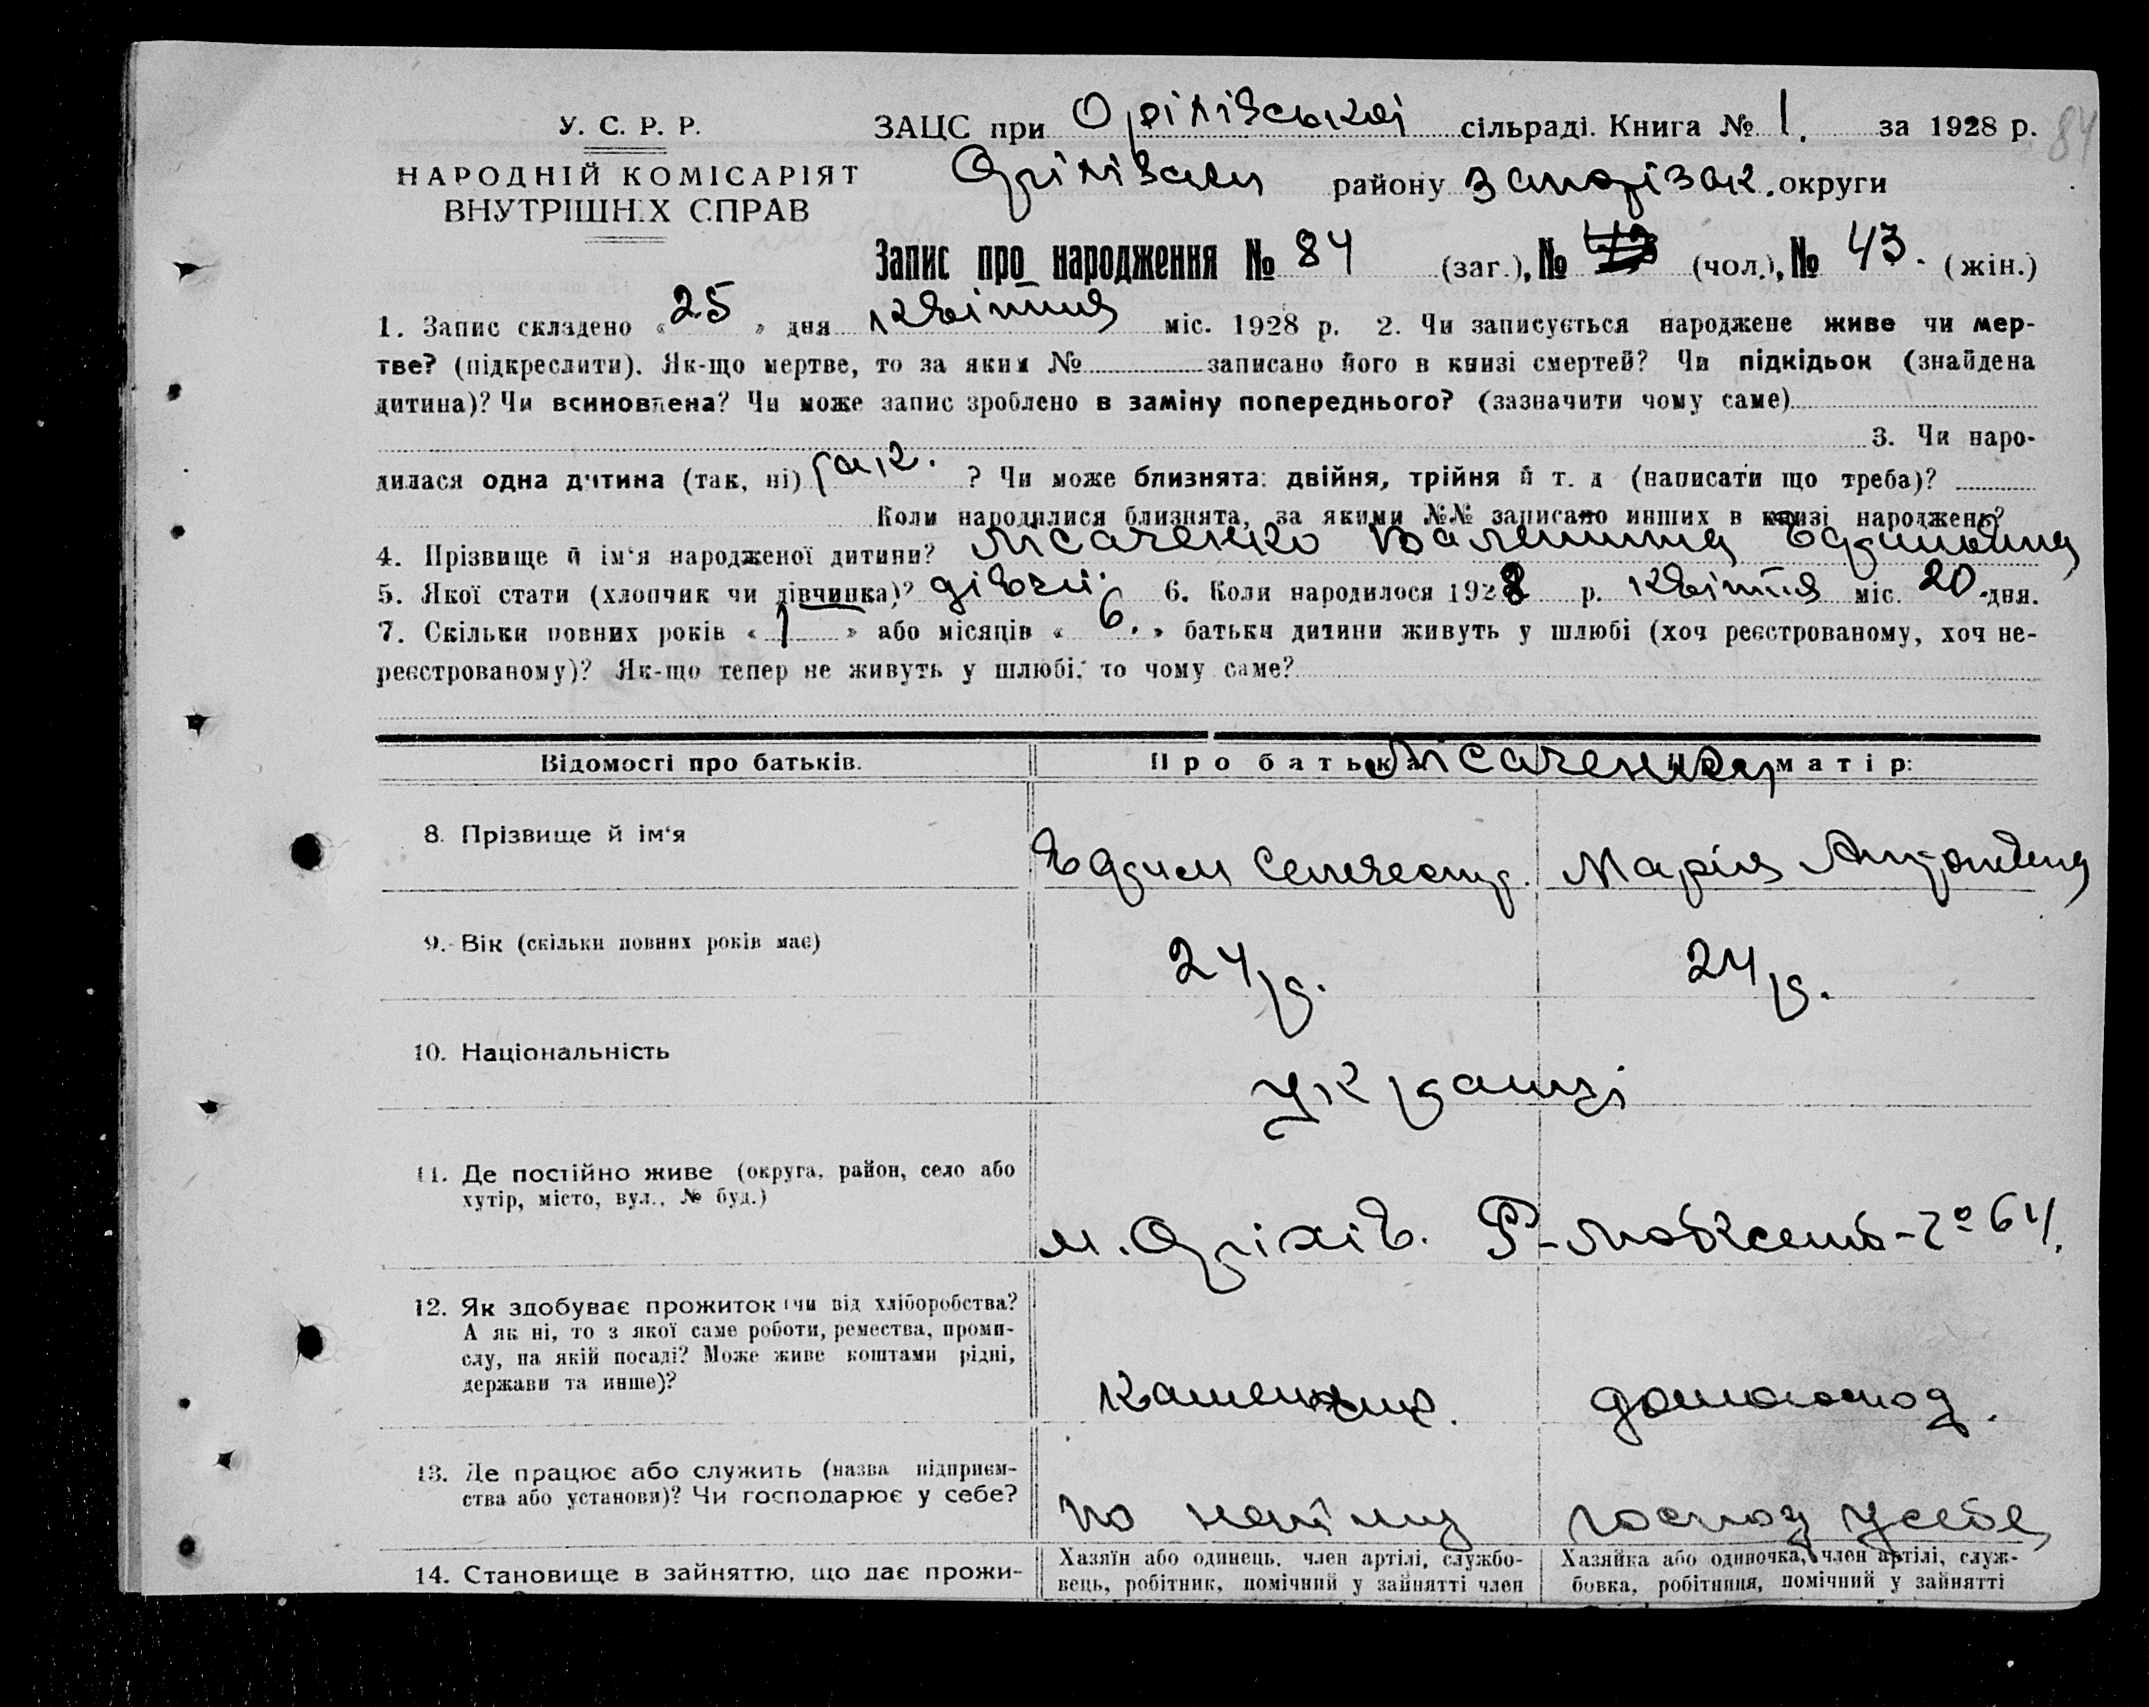 У. С. Р. Р.
НАРОДНІЙ КОМІСАРІЯТ
ВНУТРІШНІХ СПРАВ
ЗАЦС при Оріхівській сільраді. Книга № 1. за 1928 р.
84
Оріхівськ району Запоріжж. округи
Запис про народження № 84 (заг.), № (чол.), № 43. (жін.)
1. Запис складено « 25 » дня квітня міс. 1928 р. 2. Чи записується народжене живе чи мер-
тве? (підкреслити). Як-що мертве, то за яким № записано його в книзі смертей? Чи підкідьок (знайдена
дитина)? Чи всиновлена? Чи може запис зроблено в заміну попереднього? (зазначити чому саме)
3. Чи наро-
дилася одна дитина (так, ні) так. ? Чи може близнята: двійня, трійня й т. д (написати що треба)?
Коли народилися близнята, за якими №№ записано инших в книзі народжень?
4. Прізвище й ім‘я народженої дитини? Лісаченко Валентина
5. Якої стати (хлопчик чи дівчинка)? дівчи. 6. Коли народилося 1928 р. квітня міс. 20 дня.
7. Скільки повних років « 1 » або місяців « 6. » батьки дитини живуть у шлюбі (хоч реєстрованому, хоч не-
реєстрованому)? Як-що тепер не живуть у шлюбі, то чому саме?
Відомості про батьків. Про батька: матір:
Лісаченко
8. Прізвище й ім‘я Марія Антоновна
9. Вік (скільки повних років має) 24 р. 24 р.
10. Національність українці
11. Де постійно живе (округа, район, село або
хутір, місто, вул., № буд.) м. Оріхів. № 64.
12. Як здобуває прожиток (чи від хліборобства?
А як ні, то з якої саме роботи, ремества, проми-
слу, на якій посаді? Може живе коштами рідні,
держави та инше)? домогоспод.
13. Де працює або служить (назва підприєм-
ства або установи)? Чи господарює у себе? по найму господ у себе
14. Становище в зайняттю, що дає прожи- Хазяїн або одинець, член артілі, службо-
вець, робітник, помічний у зайнятті член
Хазяйка або одиночка, член артілі, служ-
бовка, робітниця, помічний у зайнятті